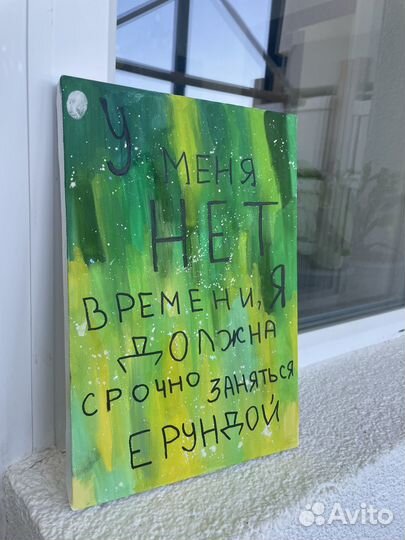 У
МЕНЯ
НЕТ
ВРЕМЕНИ, Я
ДОЛЖНА
СРОЧНО ЗАНЯТЬСЯ
ЕРУНДОЙ
Avito